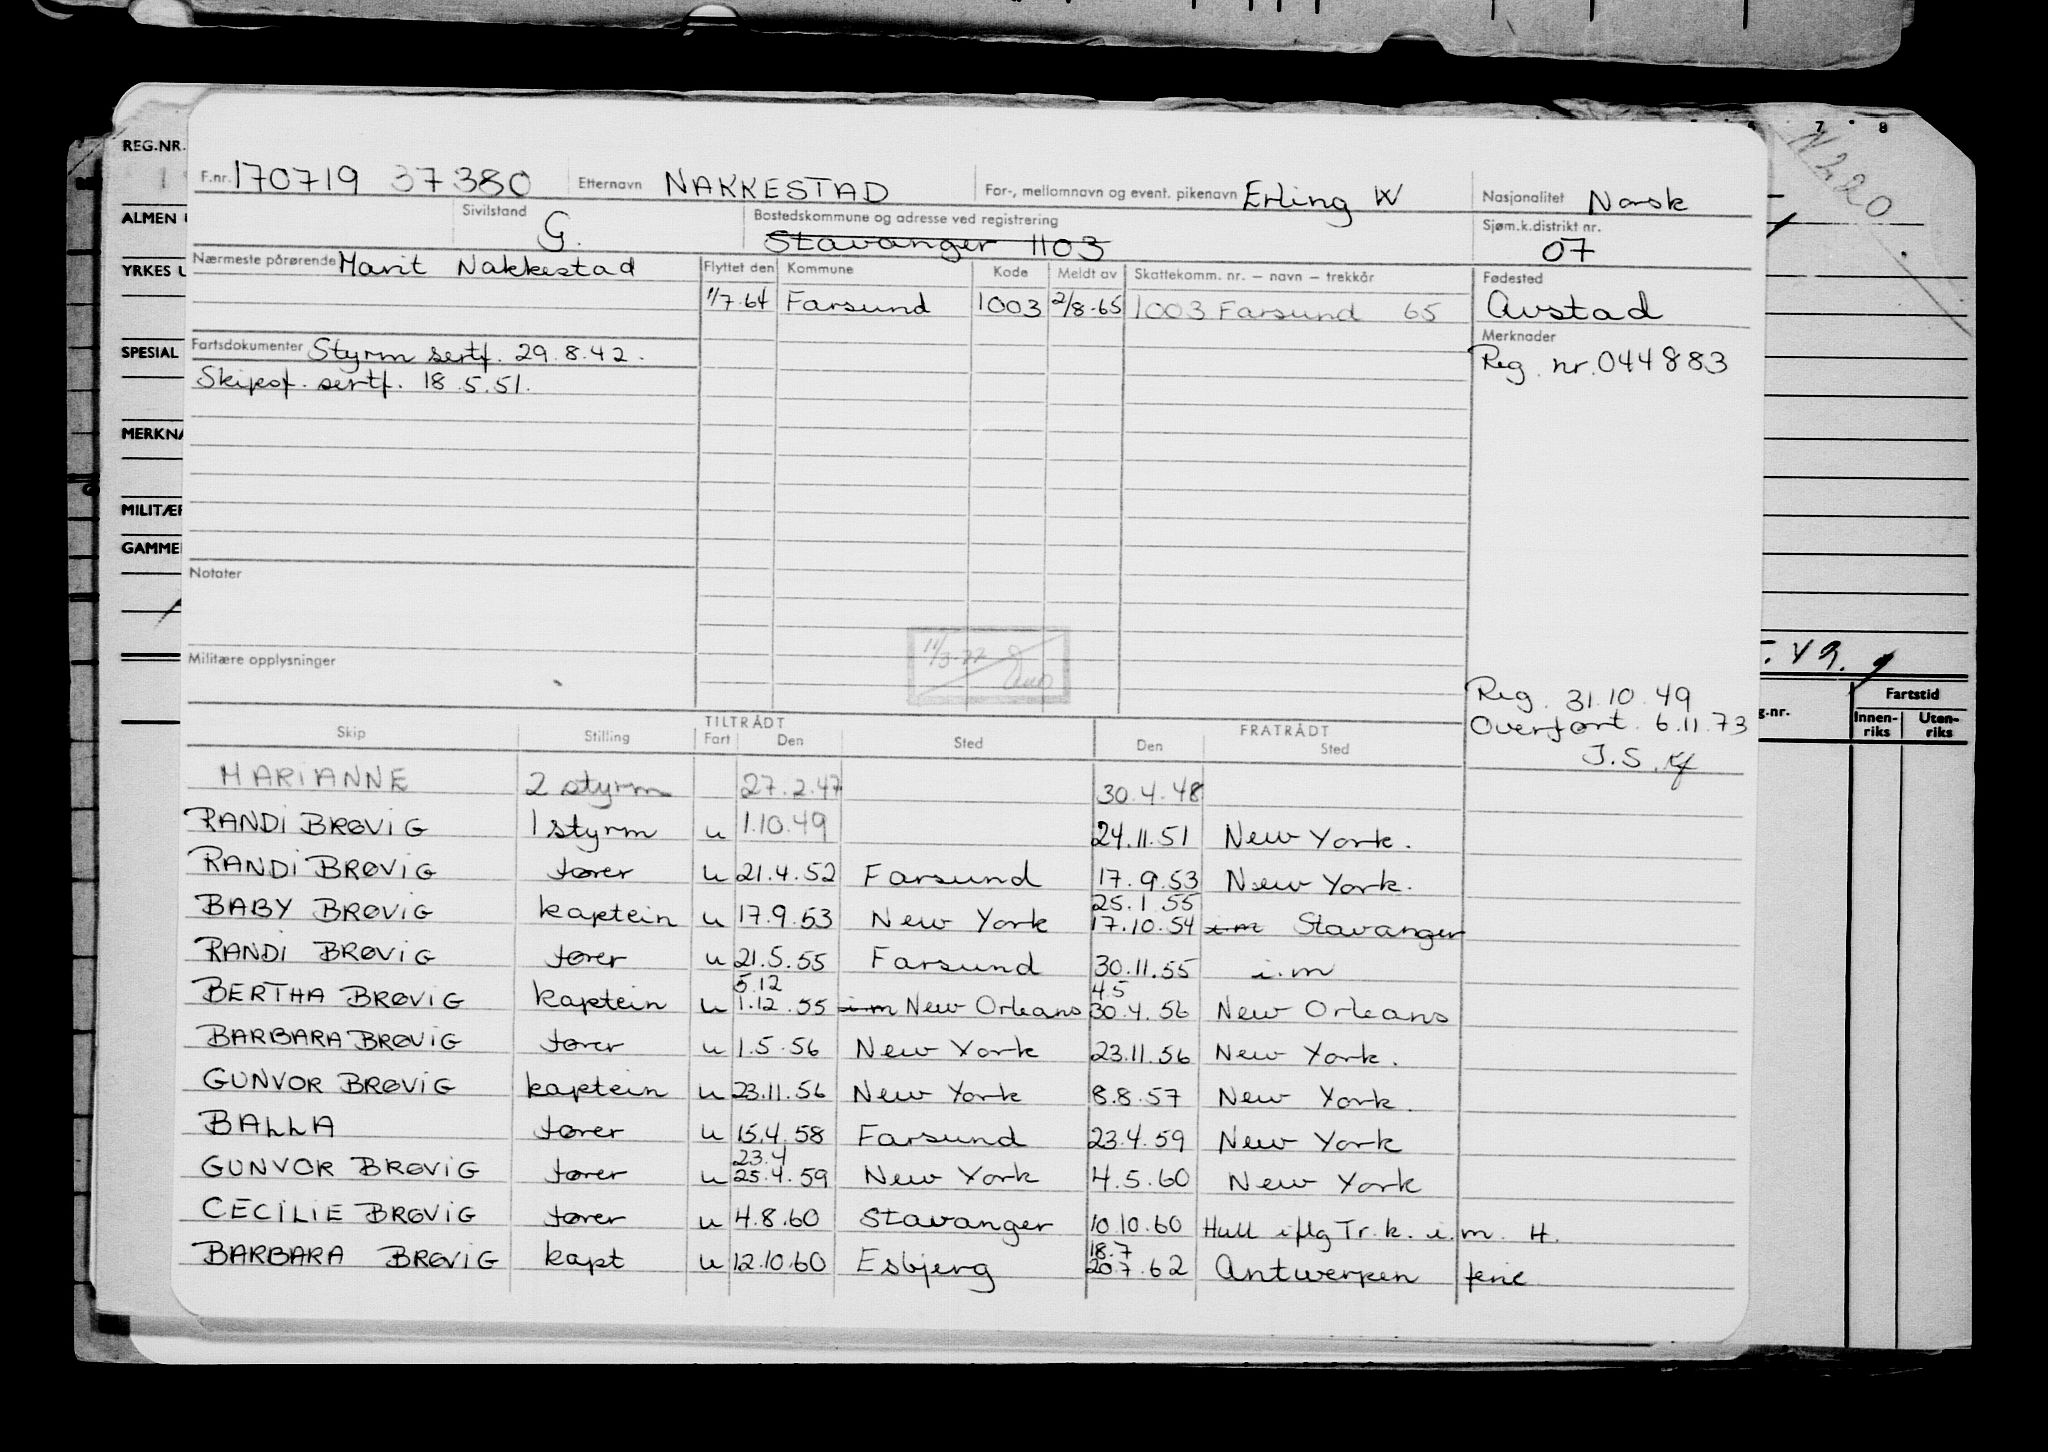 7 8
N220
REG.NR.
F.nr. 170719 37380 Etternavn NAKKESTAD For-, mellomnavn og event. pikenavn Erling W Nasjonalitet Norsk
ALMEN Sivilstand G. Bostedskommune og adresse ved registrering Stavanger 1103 Sjøm.k.distrikt nr. 07
YRKES Nærmeste pårørende Marit Nakkestad Flyttet den Kommune Kode Meldt av Skattekomm. nr. – navn – trekkår Fødested
1/7.64 Farsund 1003 2/8.65 1003 Farsund 65 Avstad
SPESIAL Fartsdokumenter Styrm sertf. 29.8.42. Merknader
Skipsf. sertf. 18.5.51. Reg. nr. 044883
MERKNA
MILITÆR
GAMMEL
Notater
11/3-77
Militære opplysninger
Reg. 31.10.49
Overført. 6.11.73
J.S.
g.nr. Fartstid
Innen-riks Uten-riks
TILTRÅDT FRATRÅDT
Skip Stilling Fart Den Sted Den Sted
MARIANNE 2 styrm 27.2.47 30.4.48
RANDI BRØVIG 1 styrm u 1.10.49 24.11.51 New York.
RANDI BRØVIG fører u 21.4.52 Farsund 17.9.53 New York.
25.1.55
BABY BRØVIG kaptein u 17.9.53 New York 17.10.54 i.m Stavanger
RANDI BRØVIG fører u 21.5.55 Farsund 30.11.55 i.m
5.12 4.5
BERTHA BRØVIG kaptein u 1.12.55 i.m New Orleans 30.4.56 New Orleans
BARBARA BRØVIG fører u 1.5.56 New York 23.11.56 New York.
GUNVOR BRØVIG kaptein u 23.11.56 New York 8.8.57 New York.
BALLA fører u 15.4.58 Farsund 23.4.59 New York
23.4
GUNVOR BRØVIG fører u 25.4.59 New York 4.5.60 New York
CECILIE BRØVIG fører u 4.8.60 Stavanger 10.10.60 Hull iflg Tr.k. i.m. H.
18.7
BARBARA BRØVIG kapt u 12.10.60 Esbjerg 20.7.62 Antwerpen ferie